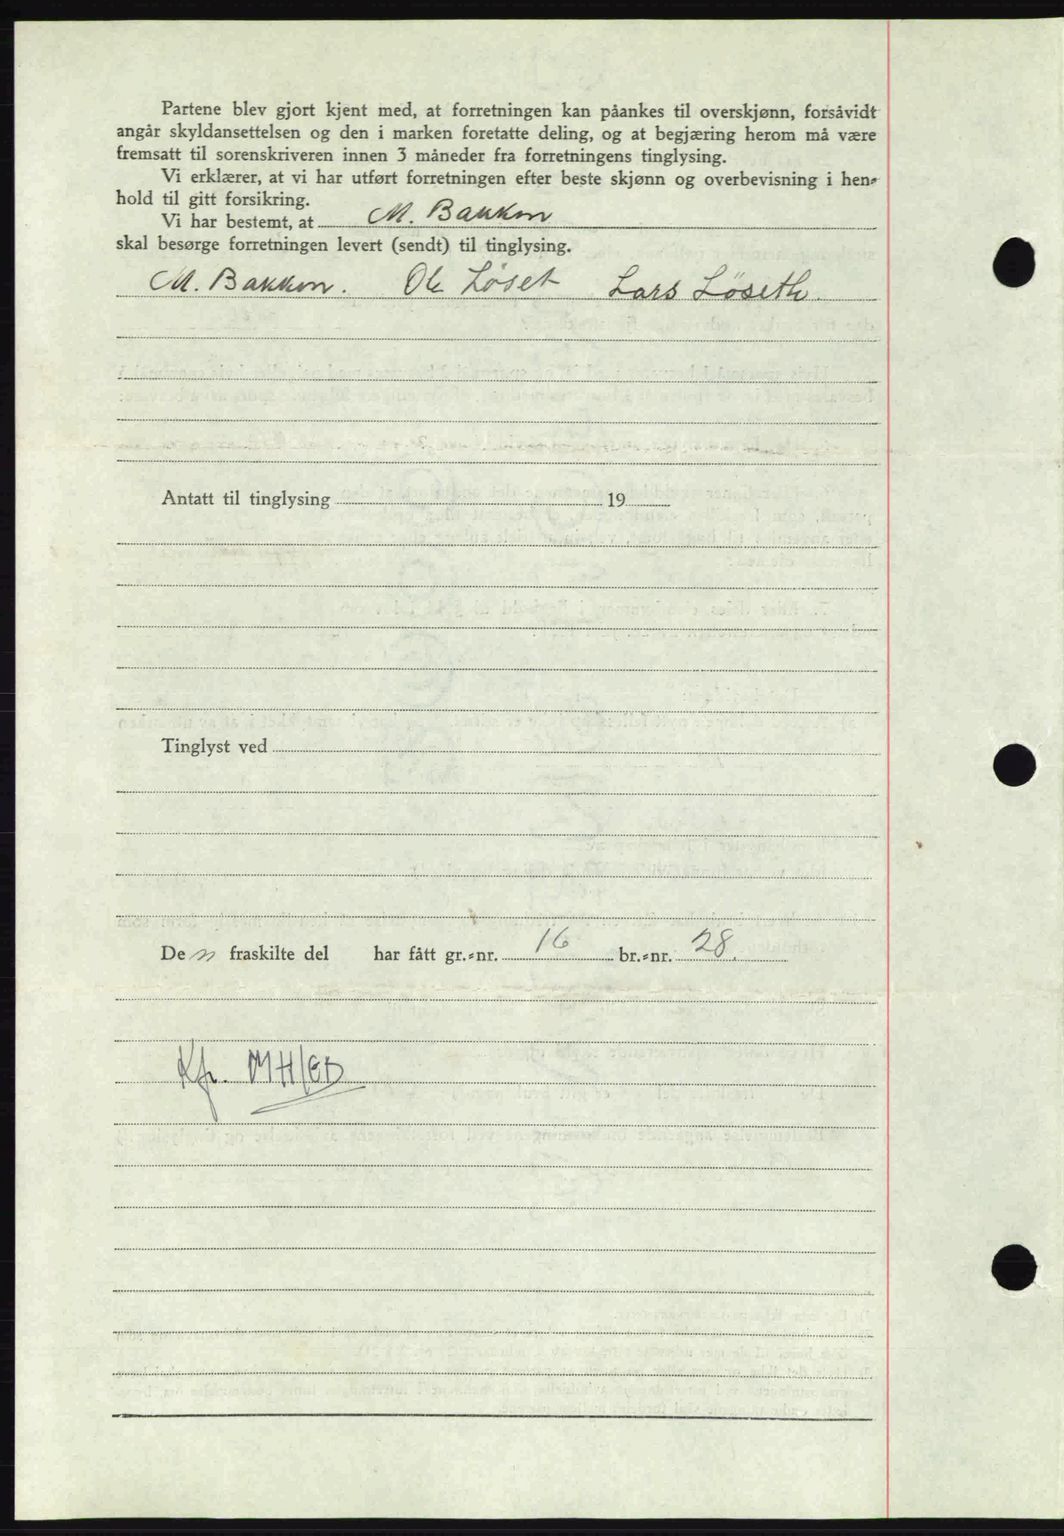 Partene blev gjort kjent med, at forretningen kan påankes til overskjønn, forsåvidt
angår skyldansettelsen og den i marken foretatte deling, og at begjæring herom må være
fremsatt til sorenskriveren innen 3 måneder fra forretningens tinglysing.
Vi erklærer, at vi har utført forretningen efter beste skjønn og overbevisning i hen-
hold til gitt forsikring.
Vi har bestemt, at M. Bakken
skal besørge forretningen levert (sendt) til tinglysing.
M. Bakken. Ole Löset Lars Löseth.
Antatt til tinglysing 19
Tinglyst ved
De n fraskilte del har fått gr.-nr. 16 br.-nr. 28.
Kfr.